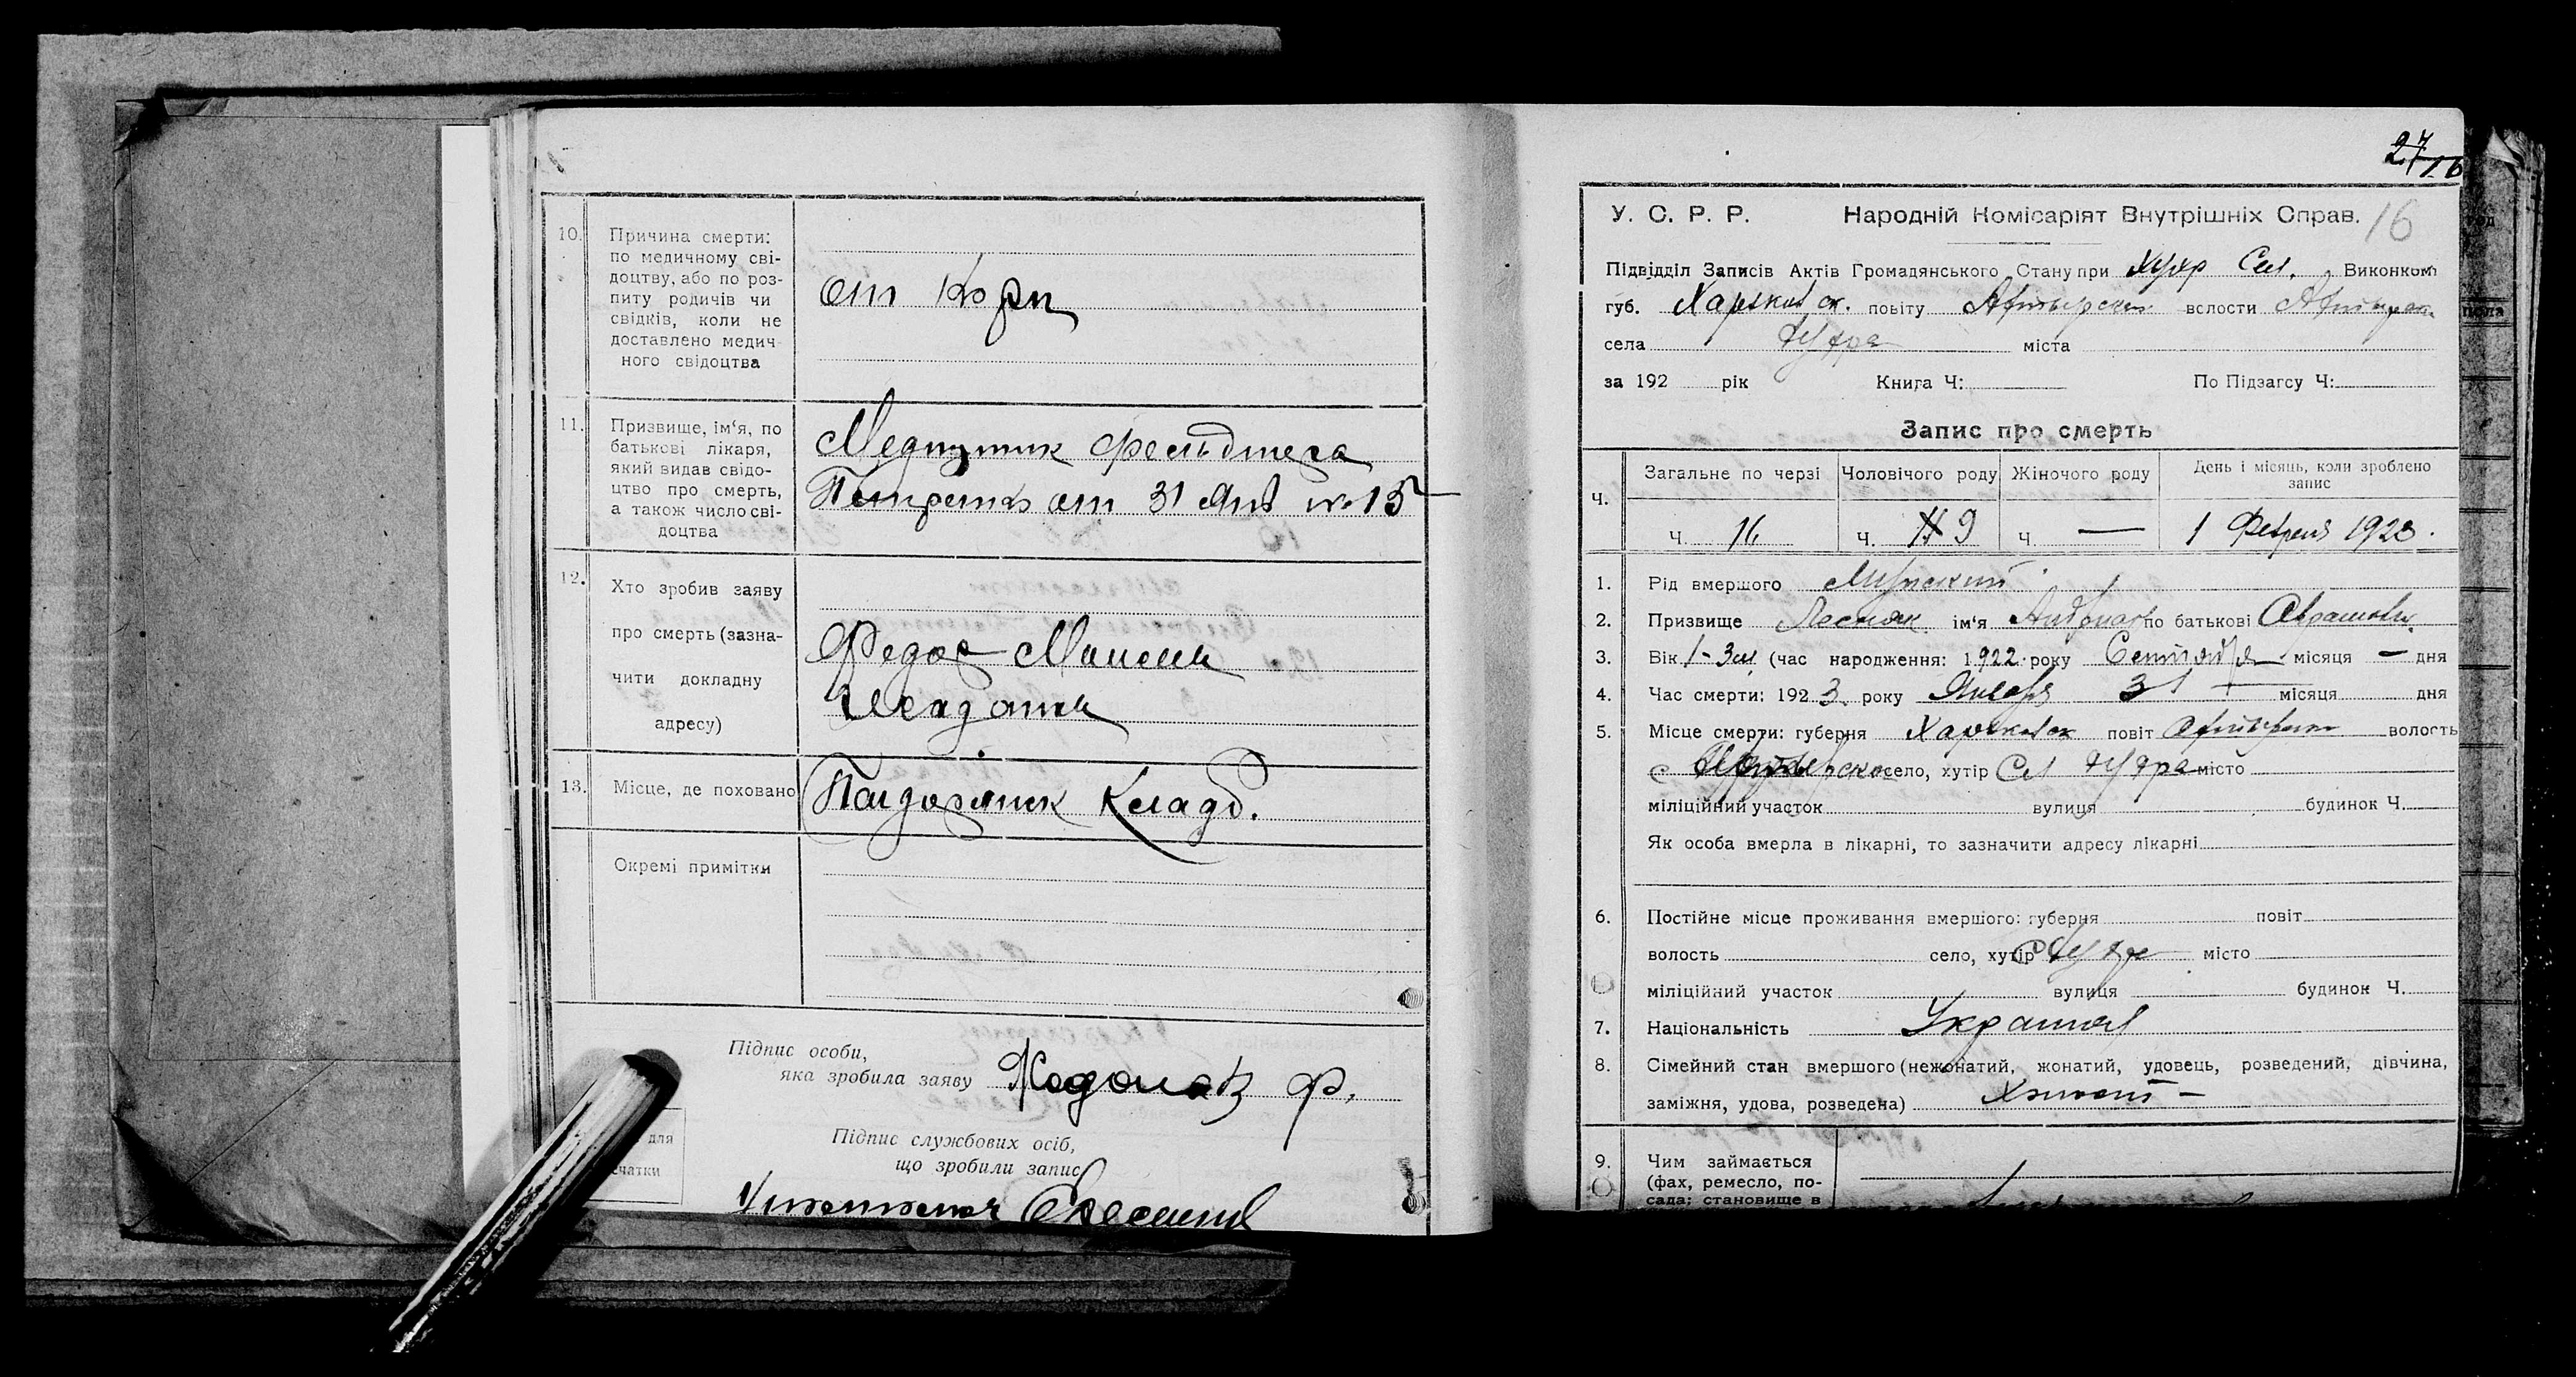 10. Причина смерти:
по медичному сві-
доцтву, або по роз-
питу родичів чи
свідків, коли не
доставлено медич-
ного свідоцтва
от Кори
11. Призвище, ім‘я, по
батькові лікаря,
який видав свідо-
цтво про смерть,
а також число сві-
доцтва
фельдшера
от 31 Янв № 15
12. Хто зробив заяву
про смерть (зазна-
чити докладну
адресу)
Федор
13. Місце, де поховано
Кладб.
Окремі примітки
Підпис особи,
яка зробила заяву Ф.
Підпис службових осіб,
що зробили запис
для
чатки
27/16
У. С. Р. Р. Народній Комісаріят Внутрішніх Справ. 16
Підвідділ Записів Актів Громадянського Стану при Хухр Сел. Виконком
губ. Харьковск. повіту Ахтырском волости Ахтырск
села Хухра міста
за 192 рік Книга Ч: По Підзагсу Ч:
Запис про смерть
Ч. Загальне по черзі Чоловічого роду Жіночого роду День і місяць, коли зроблено
запис
ч. 16 ч. 9 ч. — 1 Февраля 1923.
1. Рід вмершого Мужской
2. Призвище Лесняк ім‘я по батькові
3. Вік 1-3м (час народження: 1922 року Сентября місяця — дня
4. Час смерти: 1923. року Января 31 місяця дня
5. Місце смерти: губерня Харьковск повіт Ахтырск волость
село, хутір Сл Хухра місто
міліційний участок вулиця будинок Ч.
Як особа вмерла в лікарні, то зазначити адресу лікарні
6. Постійне місце проживання вмершого: губерня повіт
волость село, хутір Хухра місто
міліційний участок вулиця будинок Ч.
7. Національність
8. Сімейний стан вмершого (нежонатий, жонатий, удовець, розведений, дівчина,
заміжня, удова, розведена)
9. Чим займається
(фах, ремесло, по-
сада; становище в